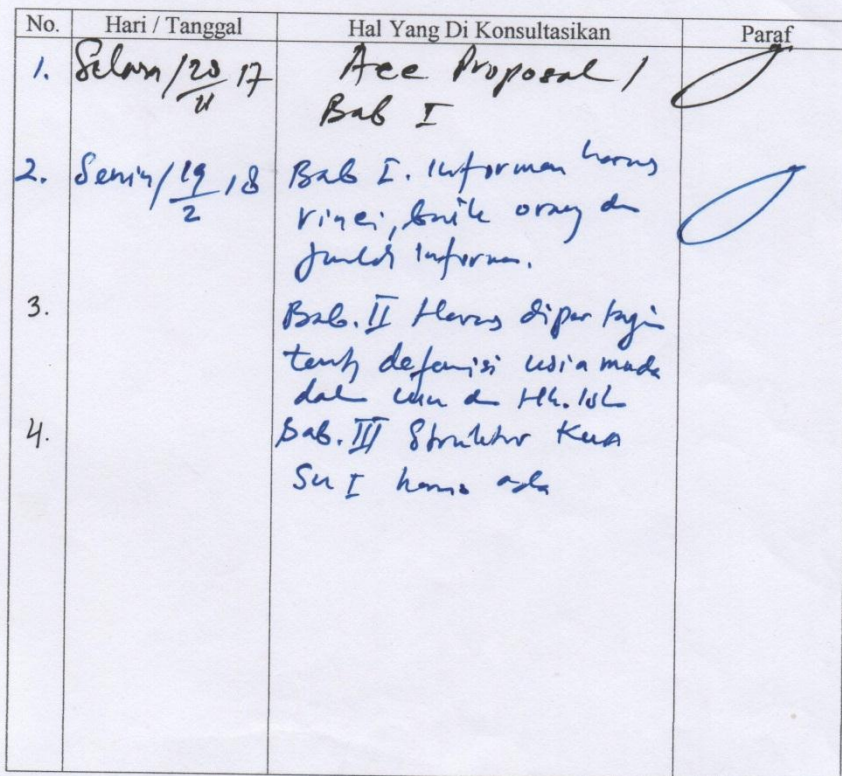 No. Hari / Tanggal Hal Yang Di Konsultasikan Paraf
1. Selasa / 28/11 17 Acc Proposal /
Bab I
2. Senin / 19/2 18 Bab I. Informan harus
rinci, baik orang dan
Jumlah Informan.
3. Bab. II Harus dipertegas
tentang defenisi usia muda
dan
4. Bab. III Struktur KUA
SU I harus ada